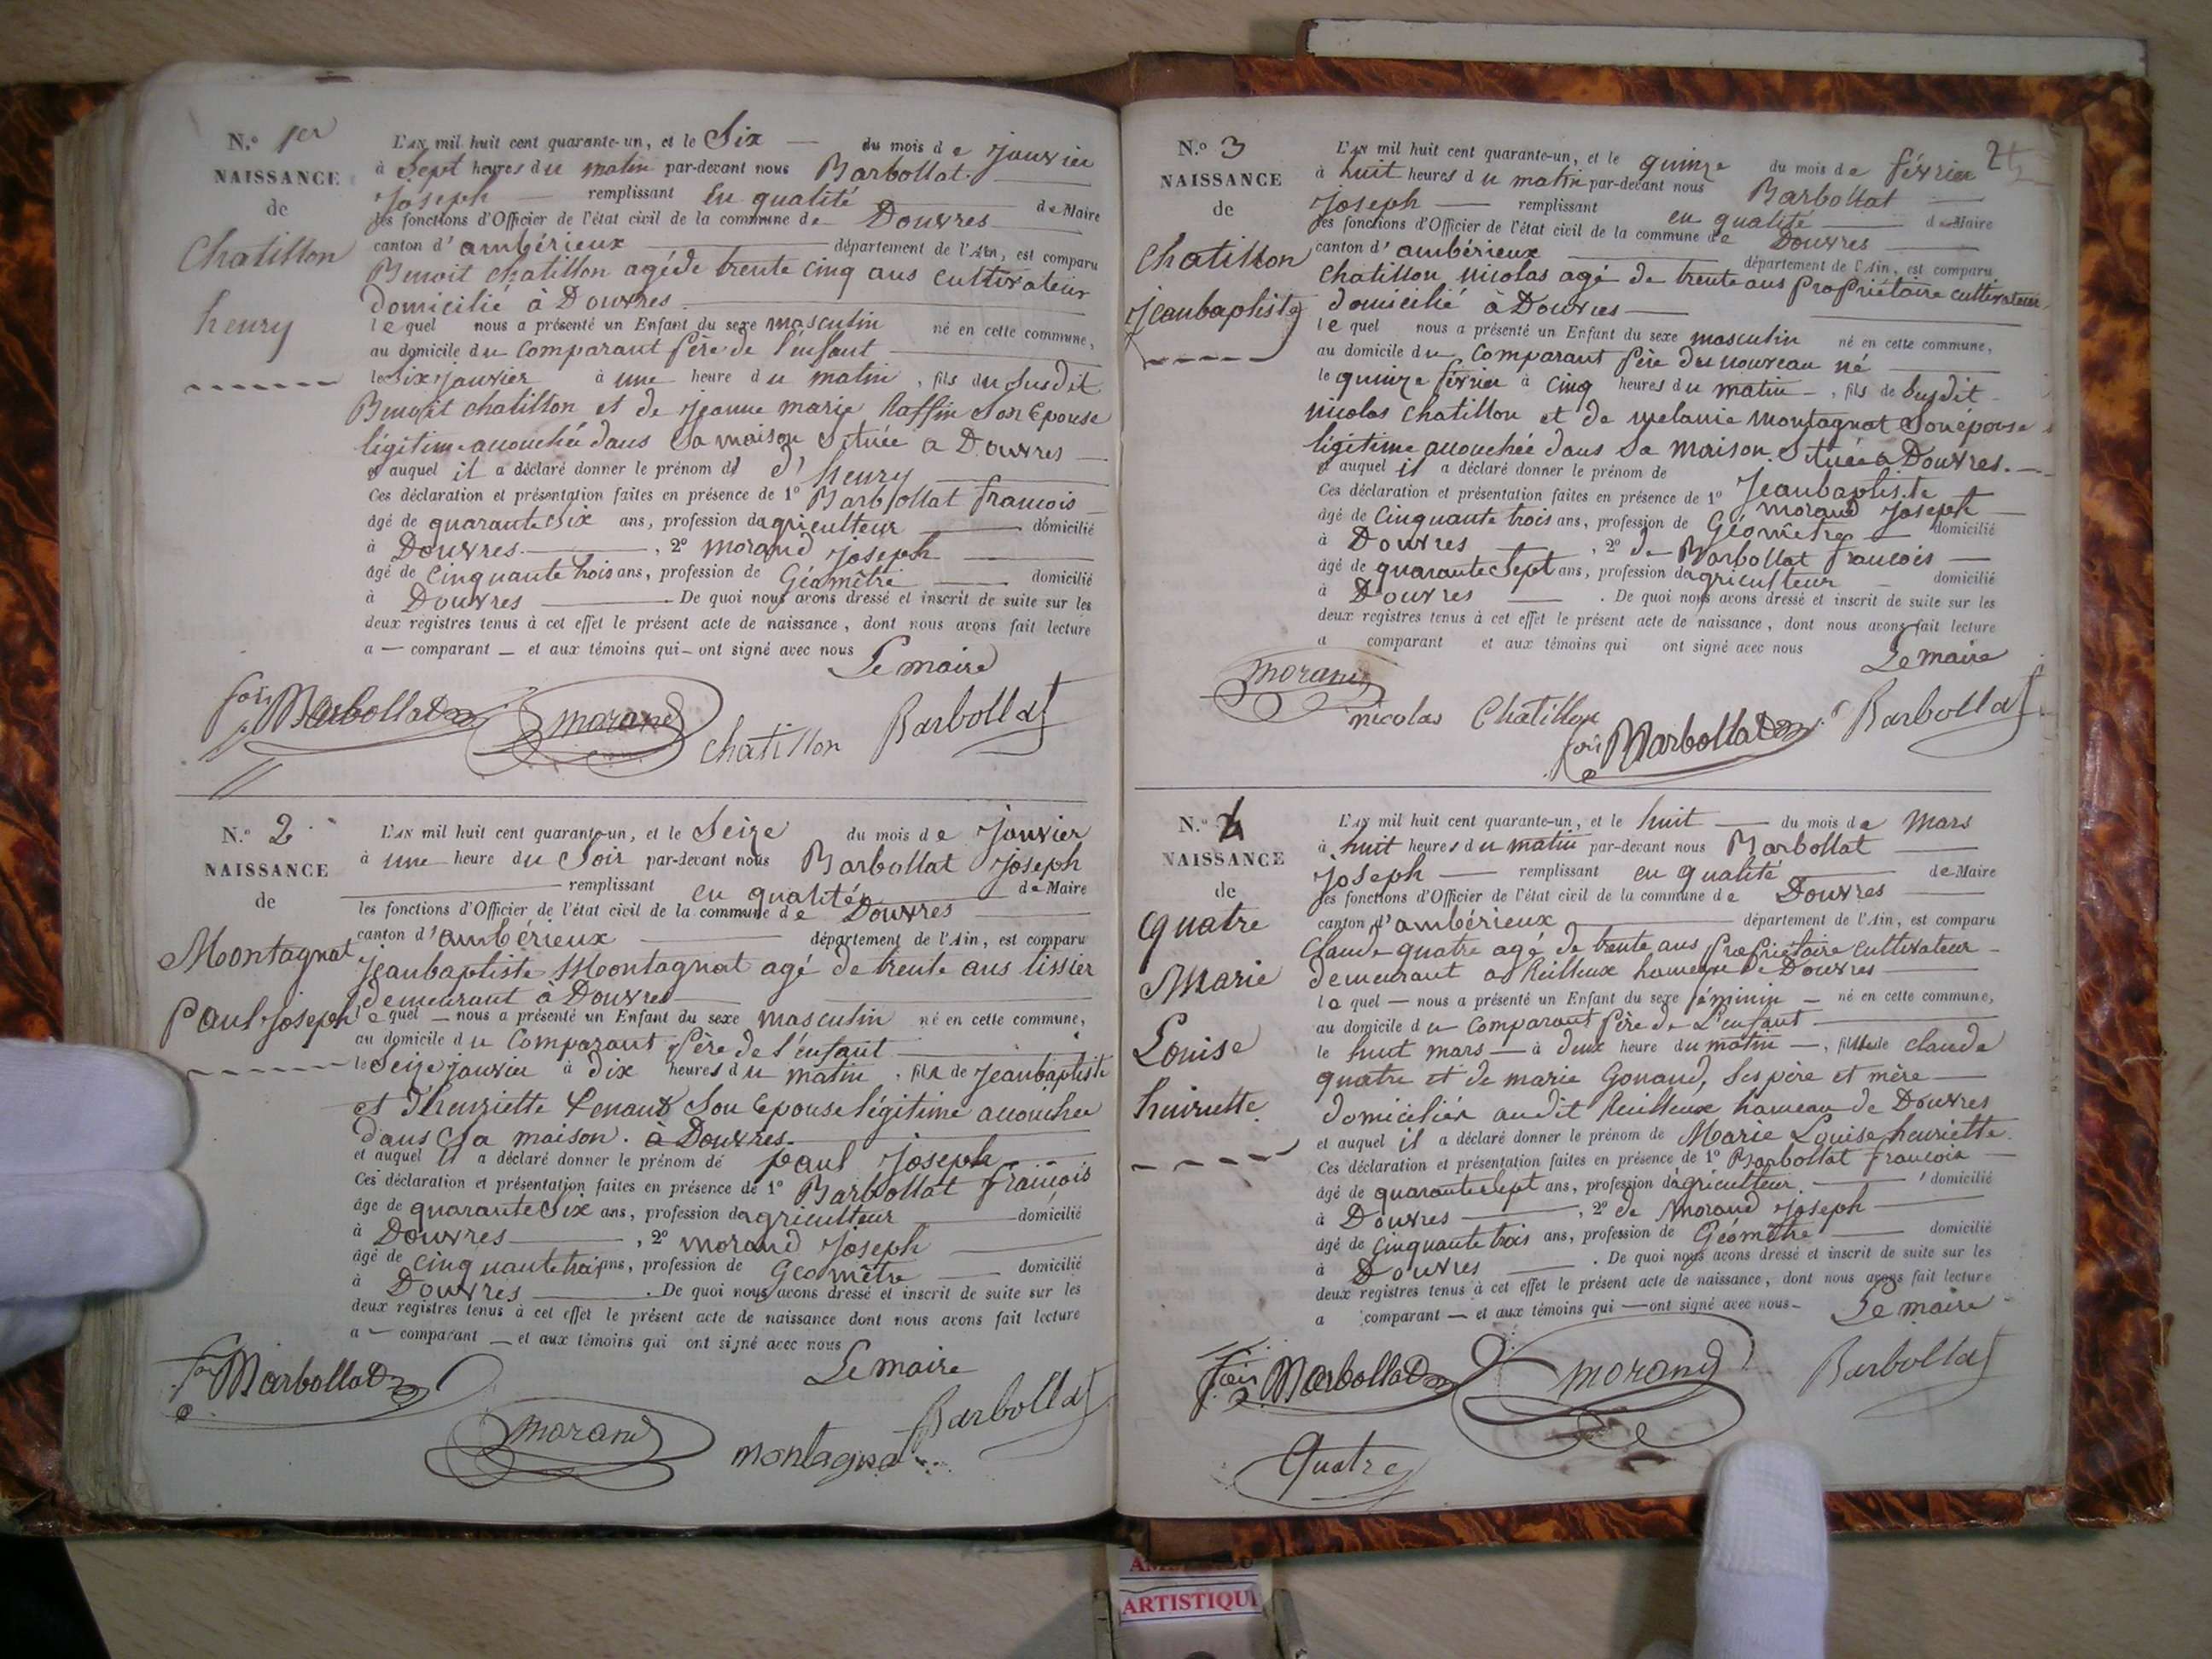 N.º 1er
NAISSANCE
de
Chatillon
henry
L'AN mil huit cent quarante-un, et le Six du mois de janvier
à Sept heures du matin par-devant nous Barbollat
joseph remplissant en qualité de Maire
les fonctions d'Officier de l'état civil de la commune de Douvres
canton d'ambérieux département de l'Ain, est comparu
Benoit chatillon agé de trente cinq ans cultivateur
domicilié à Douvres
lequel nous a présenté un Enfant du sexe masculin né en cette commune,
au domicile du comparant père de l'enfant
le Six janvier à une heure du matin, fils du susdit
Benoit chatillon et de jeanne marie Raffin son épouse
légitime accouchée dans sa maison située a Douvres
et auquel il a déclaré donner le prénom d' henry
Ces déclaration et présentation faites en présence de 1º Barbollat francois
âgé de quarante six ans, profession d'agriculteur domicilié
à Douvres, 2º morand joseph
âgé de cinquante trois ans, profession de Géomètre domicilié
à Douvres De quoi nous avons dressé et inscrit de suite sur les
deux registres tenus à cet effet le présent acte de naissance, dont nous avons fait lecture
a comparant et aux témoins qui ont signé avec nous
Le maire
fois Barbollat morand chatillon Barbollat
N.º 2
NAISSANCE
de
Montagnat
Paul joseph
L'AN mil huit cent quarante-un, et le Seize du mois de janvier
à une heure du Soir par-devant nous Barbollat joseph
remplissant en qualité de Maire
les fonctions d'Officier de l'état civil de la commune de Douvres
canton d'ambérieux département de l'Ain, est comparu
jeanbaptiste Montagnat agé de trente ans tissier
demeurant à Douvres
lequel nous a présenté un Enfant du sexe masculin né en cette commune,
au domicile du comparant père de l'enfant
le Seize janvier à dix heures du matin, fils de jeanbaptiste
et d'henriette son épouse légitime accouchée
dans sa maison. à Douvres
et auquel il a déclaré donner le prénom de paul joseph
Ces déclaration et présentation faites en présence de 1º Barbollat francois
âgé de quarante six ans, profession d'agriculteur domicilié
à Douvres, 2º morand joseph
âgé de cinquante trois ans, profession de Géomètre domicilié
à Douvres. De quoi nous avons dressé et inscrit de suite sur les
deux registres tenus à cet effet le présent acte de naissance dont nous avons fait lecture
a comparant et aux témoins qui ont signé avec nous
Le maire
Barbollat
morand montagnat Barbollat
2
N.º 3
NAISSANCE
de
Chatillon
jeanbaptiste
L'AN mil huit cent quarante-un, et le quinze du mois de février
à huit heures du matin par-devant nous Barbollat
joseph remplissant en qualité de Maire
les fonctions d'Officier de l'état civil de la commune de Douvres
canton d'ambérieux département de l'Ain, est comparu
chatillon nicolas agé de trente ans propriétaire cultivateur
domicilié à Douvres
lequel nous a présenté un Enfant du sexe masculin né en cette commune,
au domicile du comparant père du nouveau né
le quinze février à cinq heures du matin, fils de susdit
nicolas chatillon et de melanie montagnat son épouse
légitime accouchée dans sa maison située à Douvres.
et auquel il a déclaré donner le prénom de jeanbaptiste
Ces déclaration et présentation faites en présence de 1º morand joseph
âgé de cinquante trois ans, profession de Géomètre domicilié
à Douvres, 2º de Barbollat francois
âgé de quarante sept ans, profession d'agriculteur domicilié
à Douvres. De quoi nous avons dressé et inscrit de suite sur les
deux registres tenus à cet effet le présent acte de naissance, dont nous avons fait lecture
a comparant et aux témoins qui ont signé avec nous
Le maire
morand
nicolas Chatillon fois Barbollat Barbollat
N.º 4
NAISSANCE
de
quatre
Marie
Louise
henriette
L'AN mil huit cent quarante-un, et le huit du mois de Mars
à huit heures du matin par-devant nous Barbollat
joseph remplissant en qualité de Maire
les fonctions d'Officier de l'état civil de la commune de Douvres
canton d'ambérieux département de l'Ain, est comparu
Claude quatre agé de trente ans propriétaire cultivateur
demeurant a hameau de Douvres
lequel nous a présenté un Enfant du sexe féminin né en cette commune,
au domicile du comparant père de L'enfant
le huit mars à deux heure du matin, fille de claude
quatre et de marie Gonand, ses père et mère
domiciliés audit hameau de Douvres
et auquel il a déclaré donner le prénom de Marie Louise henriette
Ces déclaration et présentation faites en présence de 1º Barbollat francois
âgé de quarante sept ans, profession d'agriculteur. domicilié
à Douvres, 2º de Morand joseph
âgé de cinquante trois ans, profession de Géomètre domicilié
à Douvres. De quoi nous avons dressé et inscrit de suite sur les
deux registres tenus à cet effet le présent acte de naissance, dont nous avons fait lecture
a comparant et aux témoins qui ont signé avec nous
Le maire
fois Barbollat morand Barbollat
Quatre
ARTISTIQU